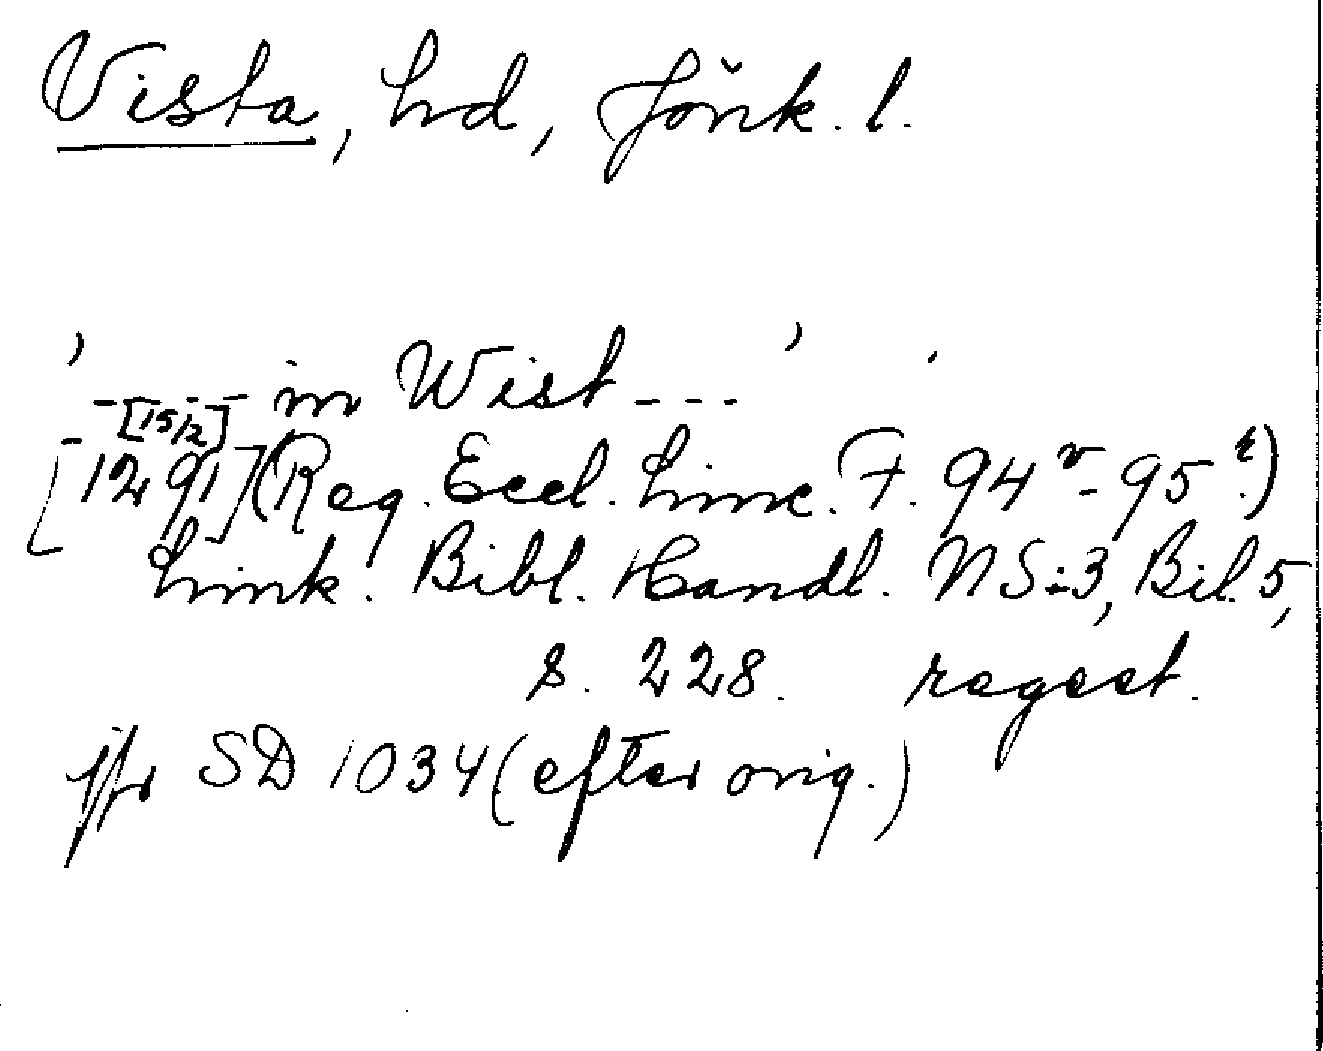 Vista, hd, Jönk. l.
’---- in Wist---’
-[15/2]
[1291] (Reg. Eccl. Linc. F. 94v-95r.)
Link. Bibl. Handl. NS:3, Bil. 5,
s. 228. regest.
jfr SD 1034 (efter orig.)